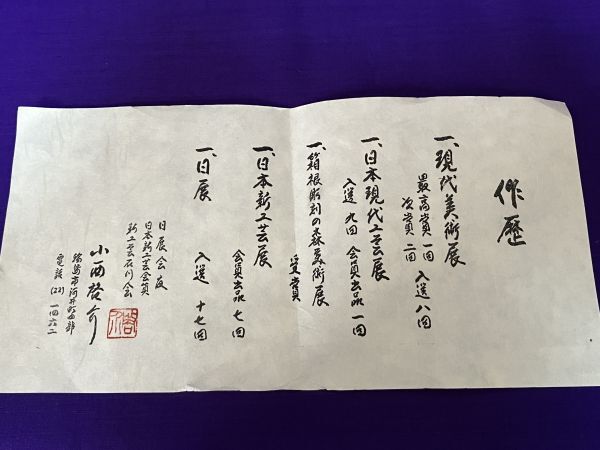 作歴
一、現代美術展
最高賞一回 入選八回
次賞二回
一、日本現代工芸展
入選九回 会員出品一回
一、箱根彫刻の森美術展
受賞
一、日本新工芸展
会員出品七回
一、日展 入選 十七回
日展会友
日本新工芸会員
新工芸石川会
小西啓介
輪島市河井町
電話(22)一四六二